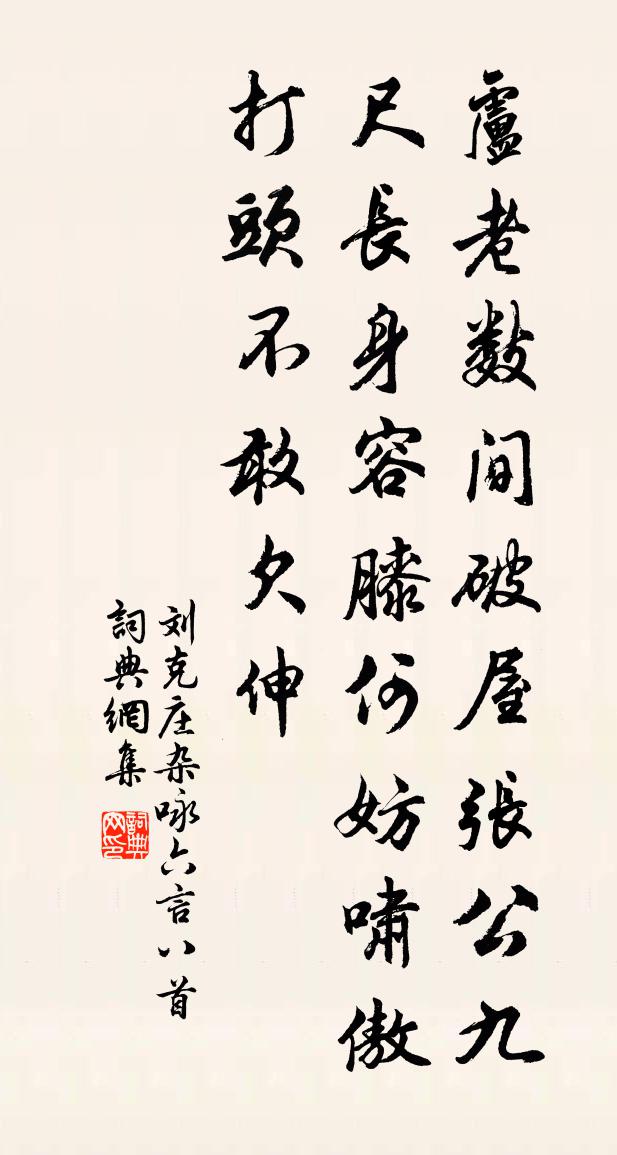 盧老數間破屋張公九
尺長身容膝何妨嘯傲
打頭不敢欠伸
刘克庄杂咏六言八首
詞典網集
詞典网印